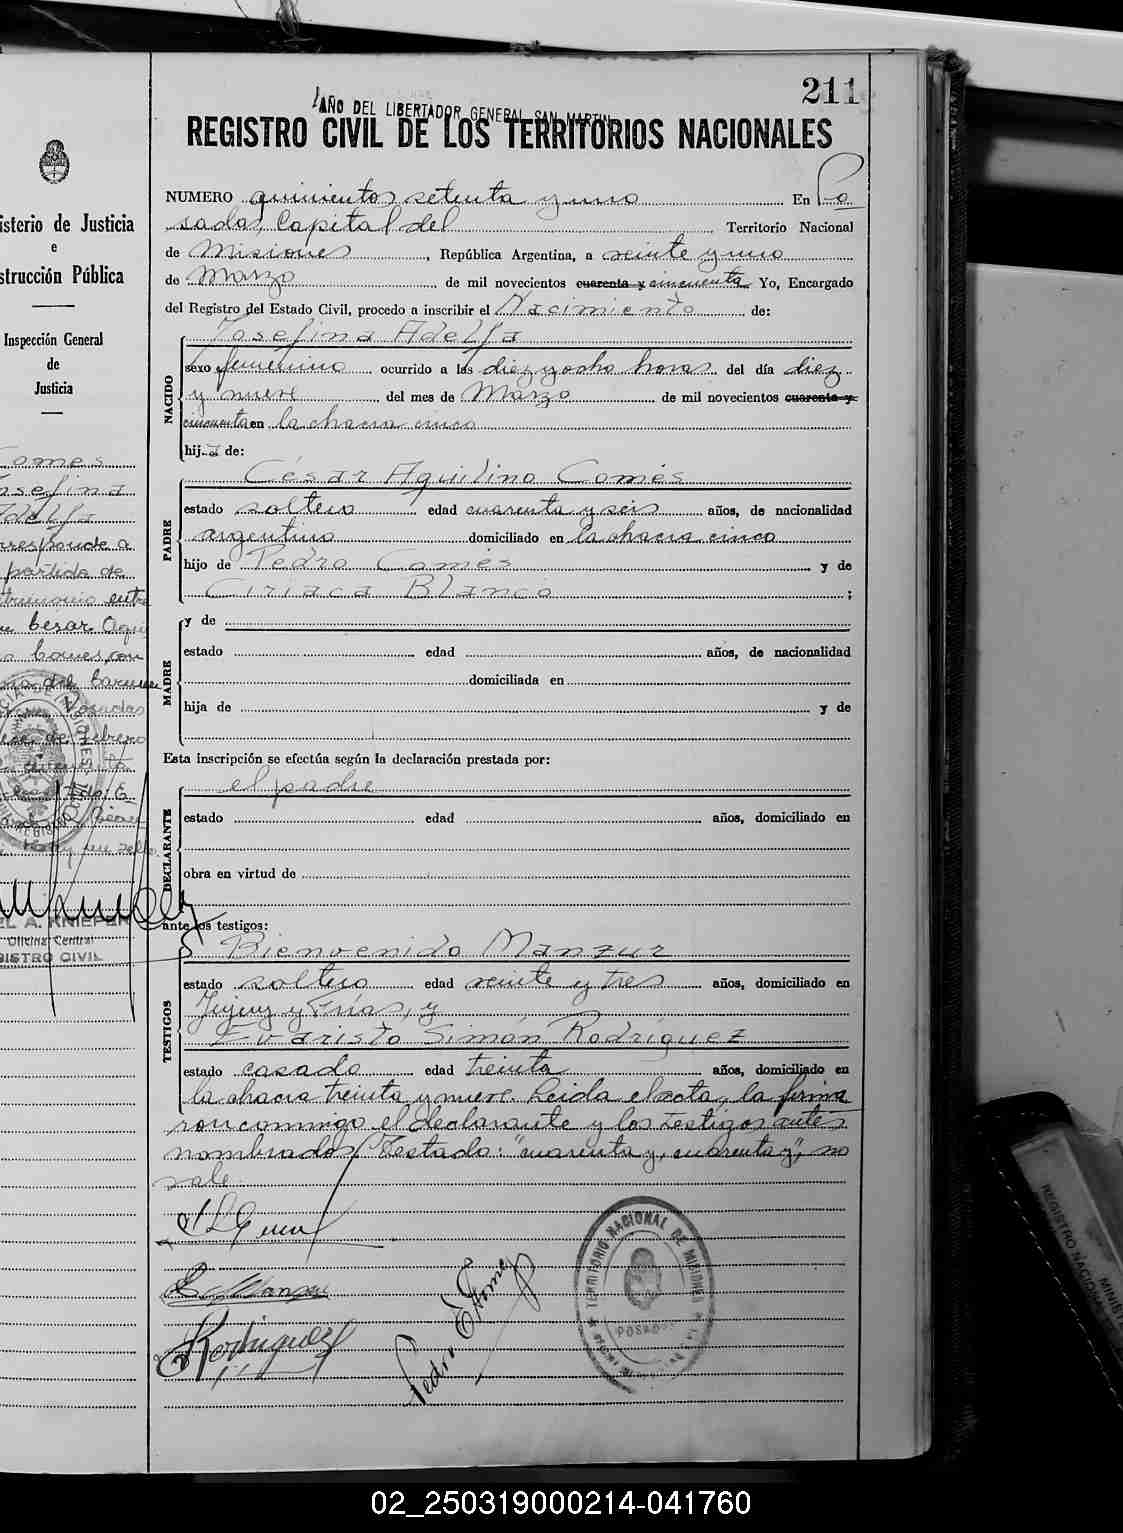 211
AÑO DEL LIBERTADOR GENERAL SAN MARTIN
REGISTRO CIVIL DE LOS TERRITORIOS NACIONALES
NUMERO quinientos setenta y uno En Po
sadas, Capital del Territorio Nacional
de Misiones, República Argentina, a veinte y uno
de Marzo de mil novecientos cuarenta y cincuenta Yo, Encargado
del Registro del Estado Civil, procedo a inscribir el Nacimiento de:
Josefina Adelfa
NACIDO
sexo femenino ocurrido a las diez y ocho horas del día diez
y nueve del mes de Marzo de mil novecientos cuarenta y
cincuenta en la chacra cinco
hija de:
César Aquilino Comes
PADRE
estado soltero edad cuarenta y seis años, de nacionalidad
argentino domiciliado en la chacra cinco
hijo de Pedro Comes y de
Ciriaca Blanco ;
MADRE
y de
estado edad años, de nacionalidad
domiciliada en
hija de y de
Esta inscripción se efectúa según la declaración prestada por:
el padre
DECLARANTE
estado edad años, domiciliado en
obra en virtud de
ante los testigos:
Bienvenido Manzur
TESTIGOS
estado soltero edad veinte y tres años, domiciliado en
Jujuy y Frías, y
Evaristo Simón Rodríguez
estado casado edad treinta años, domiciliado en
la chacra treinta y nueve. Leida el acta, la firma
ron conmigo el declarante y los testigos antes
nombrados. Testado: "cuarenta y, cuarenta y", no
vale.
B. Manzur
Rodriguez
Pedro
TERRITORIO NACIONAL DE MISIONES
POSADAS
isterio de Justicia
e
strucción Pública
Inspección General
de
Justicia
Comes
osefina
Adelfa
rresponde a
partida de
trimonio entre
César Aqui
o Comes, con
del Carmen
Posadas
de Febrero
EL A. KNIEPER
Oficina Central
GISTRO CIVIL
REGISTRO
NACIONAL
MINIST
02_250319000214-041760